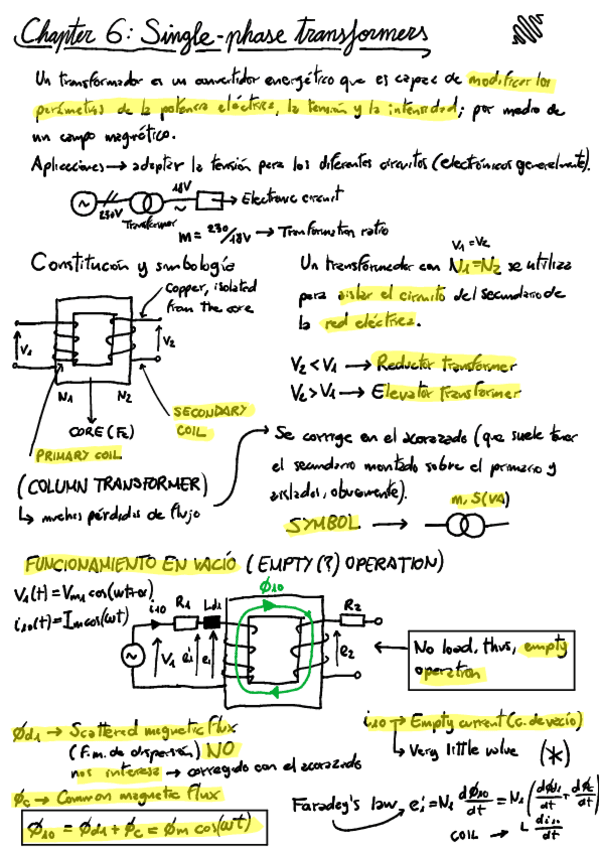 Chapter 6: Single-phase transformers
Un transformador es un convertidor energético que es capaz de modificar los
parámetros de la potencia eléctrica, la tensión y la intensidad; por medio de
un campo magnético.
Aplicaciones → adaptar la tensión para los diferentes circuitos (electrónicos generalmente).
~ 230V Transformer 18V ~ → Electronic circuit
m = 230/18V → Tranformation ratio
Constitución y simbología
Copper, isolated
from the core
V1
V2
N1 N2
CORE (Fe)
SECONDARY
COIL
PRIMARY COIL
(COLUMN TRANSFORMER)
↳ muchas pérdidas de flujo
V1 = V2
Un transformador con N1=N2 se utiliza
para aislar el circuito del secundario de
la red eléctrica.
V2 < V1 → Reductor transformer
V2 > V1 → Elevator transformer
Se corrige en el acorazado (que suele tener
el secundario montado sobre el primario y
aislados, obviamente).
SYMBOL → m, S(VA)
FUNCIONAMIENTO EN VACIO (EMPTY (?) OPERATION)
V1(t) = Vm1 cos(wt+α)
i10(t) = Im cos(wt)
i10 R1 Ld1
ϕ10
R2
~ V1 e1' e1
e2
No load, thus, empty
operation
ϕd1 → Scattered magnetic flux
(F.m. de dispersión) NO
nos interesa → corregido con el acorazado
ϕc → Common magnetic flux
ϕ10 = ϕd1 + ϕc = ϕm cos(wt)
i10 → Empty current (c. de vacío)
↳ Very little value (*)
Faraday's law, e1' = N1 dϕ10/dt = N1 (dϕd1/dt + dϕc/dt)
COIL → L di10/dt